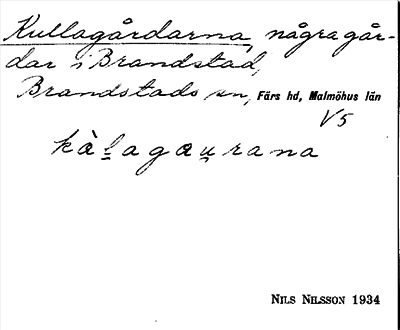 Kullagårdarna, några går-
dar i Brandstad,
Brandstads sn, Färs hd, Malmöhus län
V5
NILS NILSSON 1934